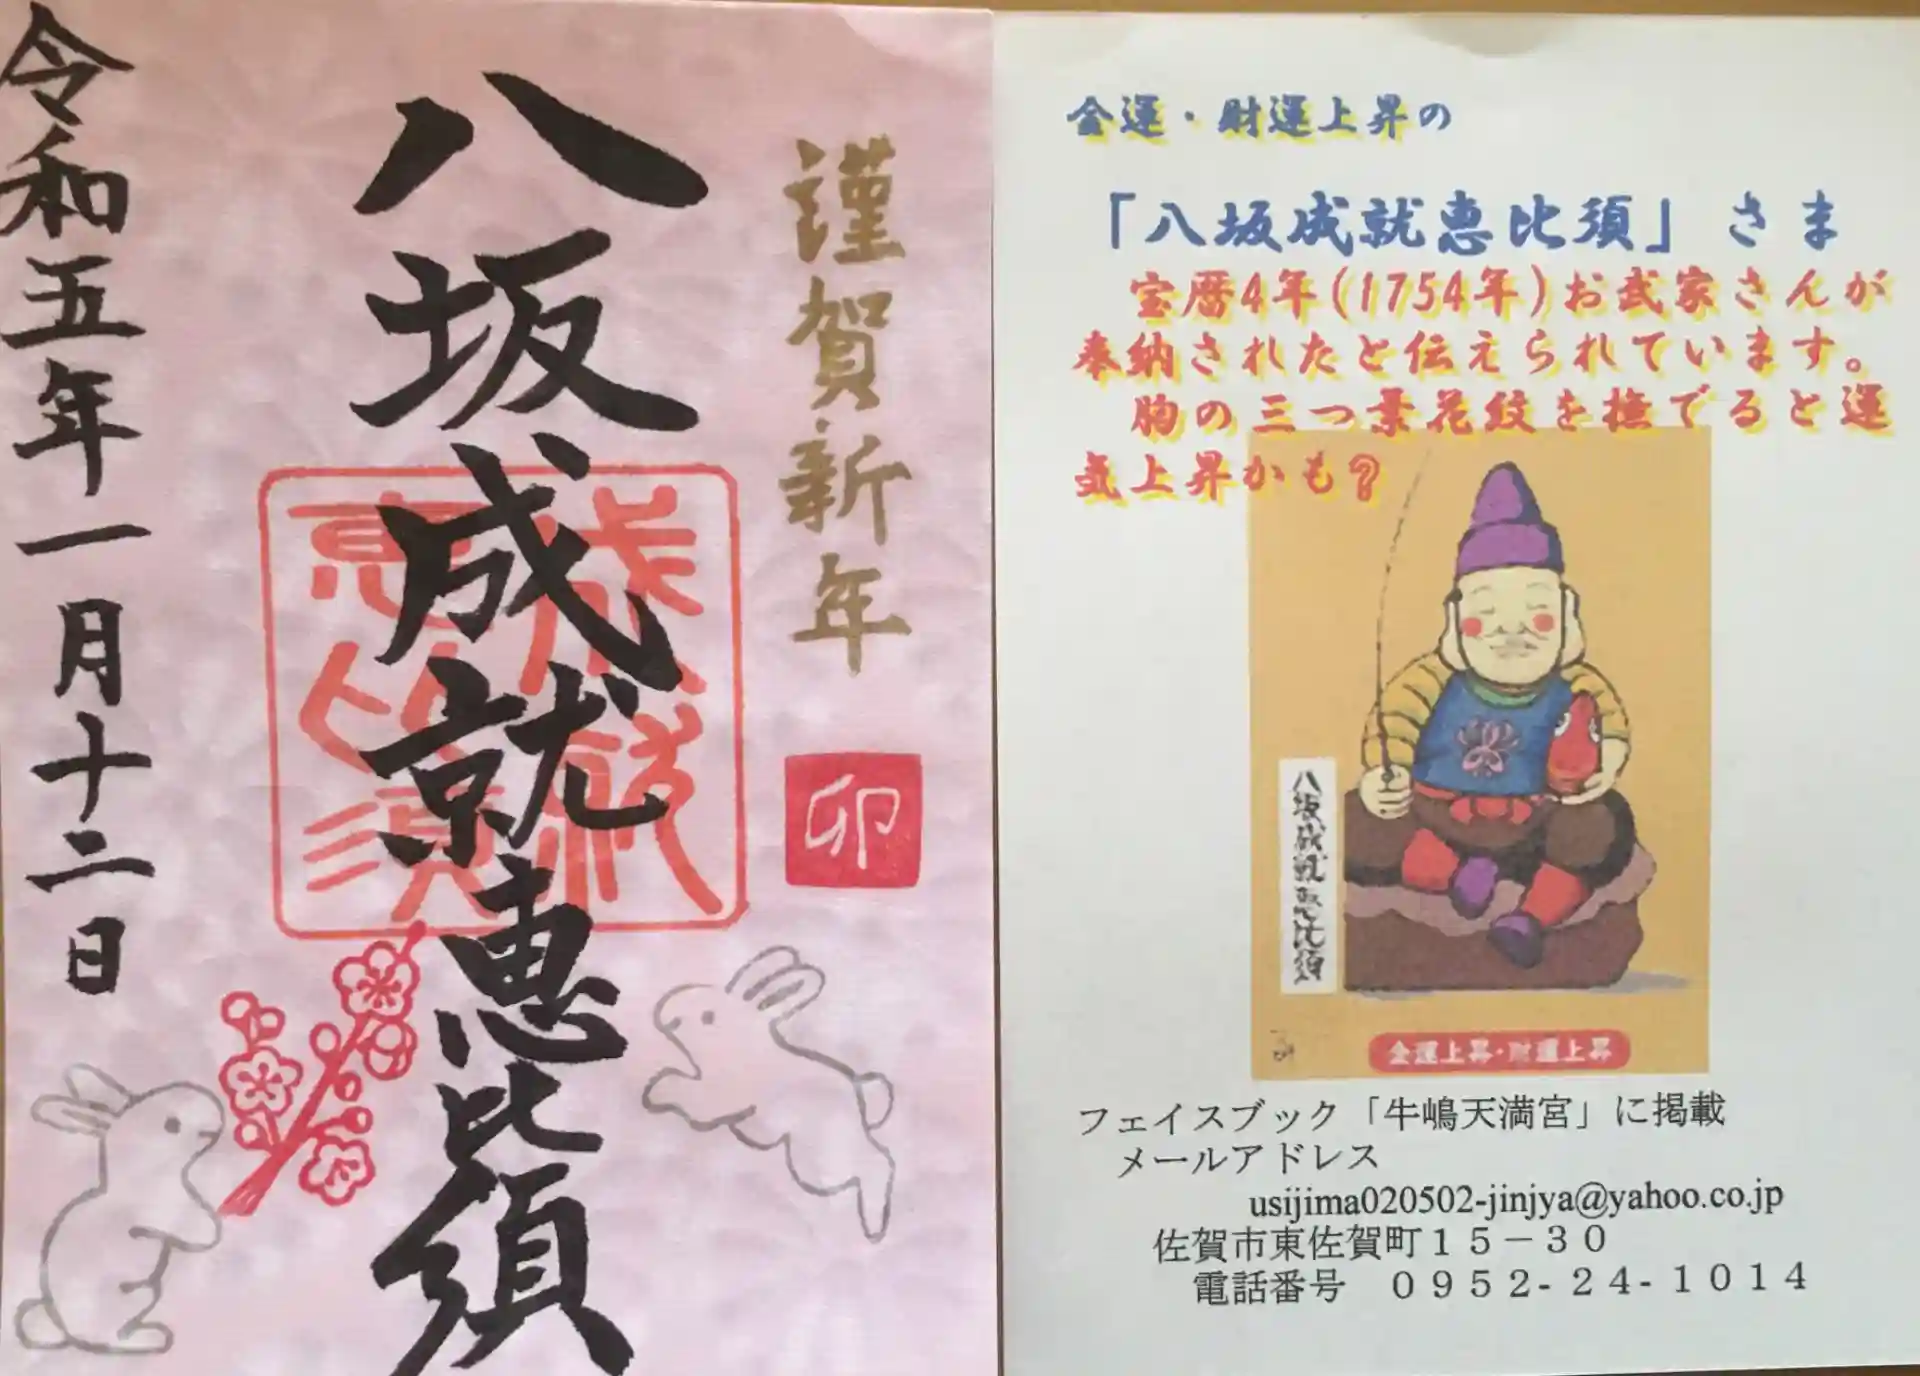 令和五年一月十二日
八坂成就恵比須
謹賀新年
成就
恵比須
卯
金運・財運上昇の
「八坂成就恵比須」さま
宝暦4年(1754年)お武家さんが
奉納されたと伝えられています。
胸の三つ葉花紋を撫でると運
気上昇かも?
八坂成就恵比須
金運上昇・財運上昇
フェイスブック「牛嶋天満宮」に掲載
メールアドレス
usijima020502-jinjya@yahoo.co.jp
佐賀市東佐賀町15-30
電話番号 0952-24-1014